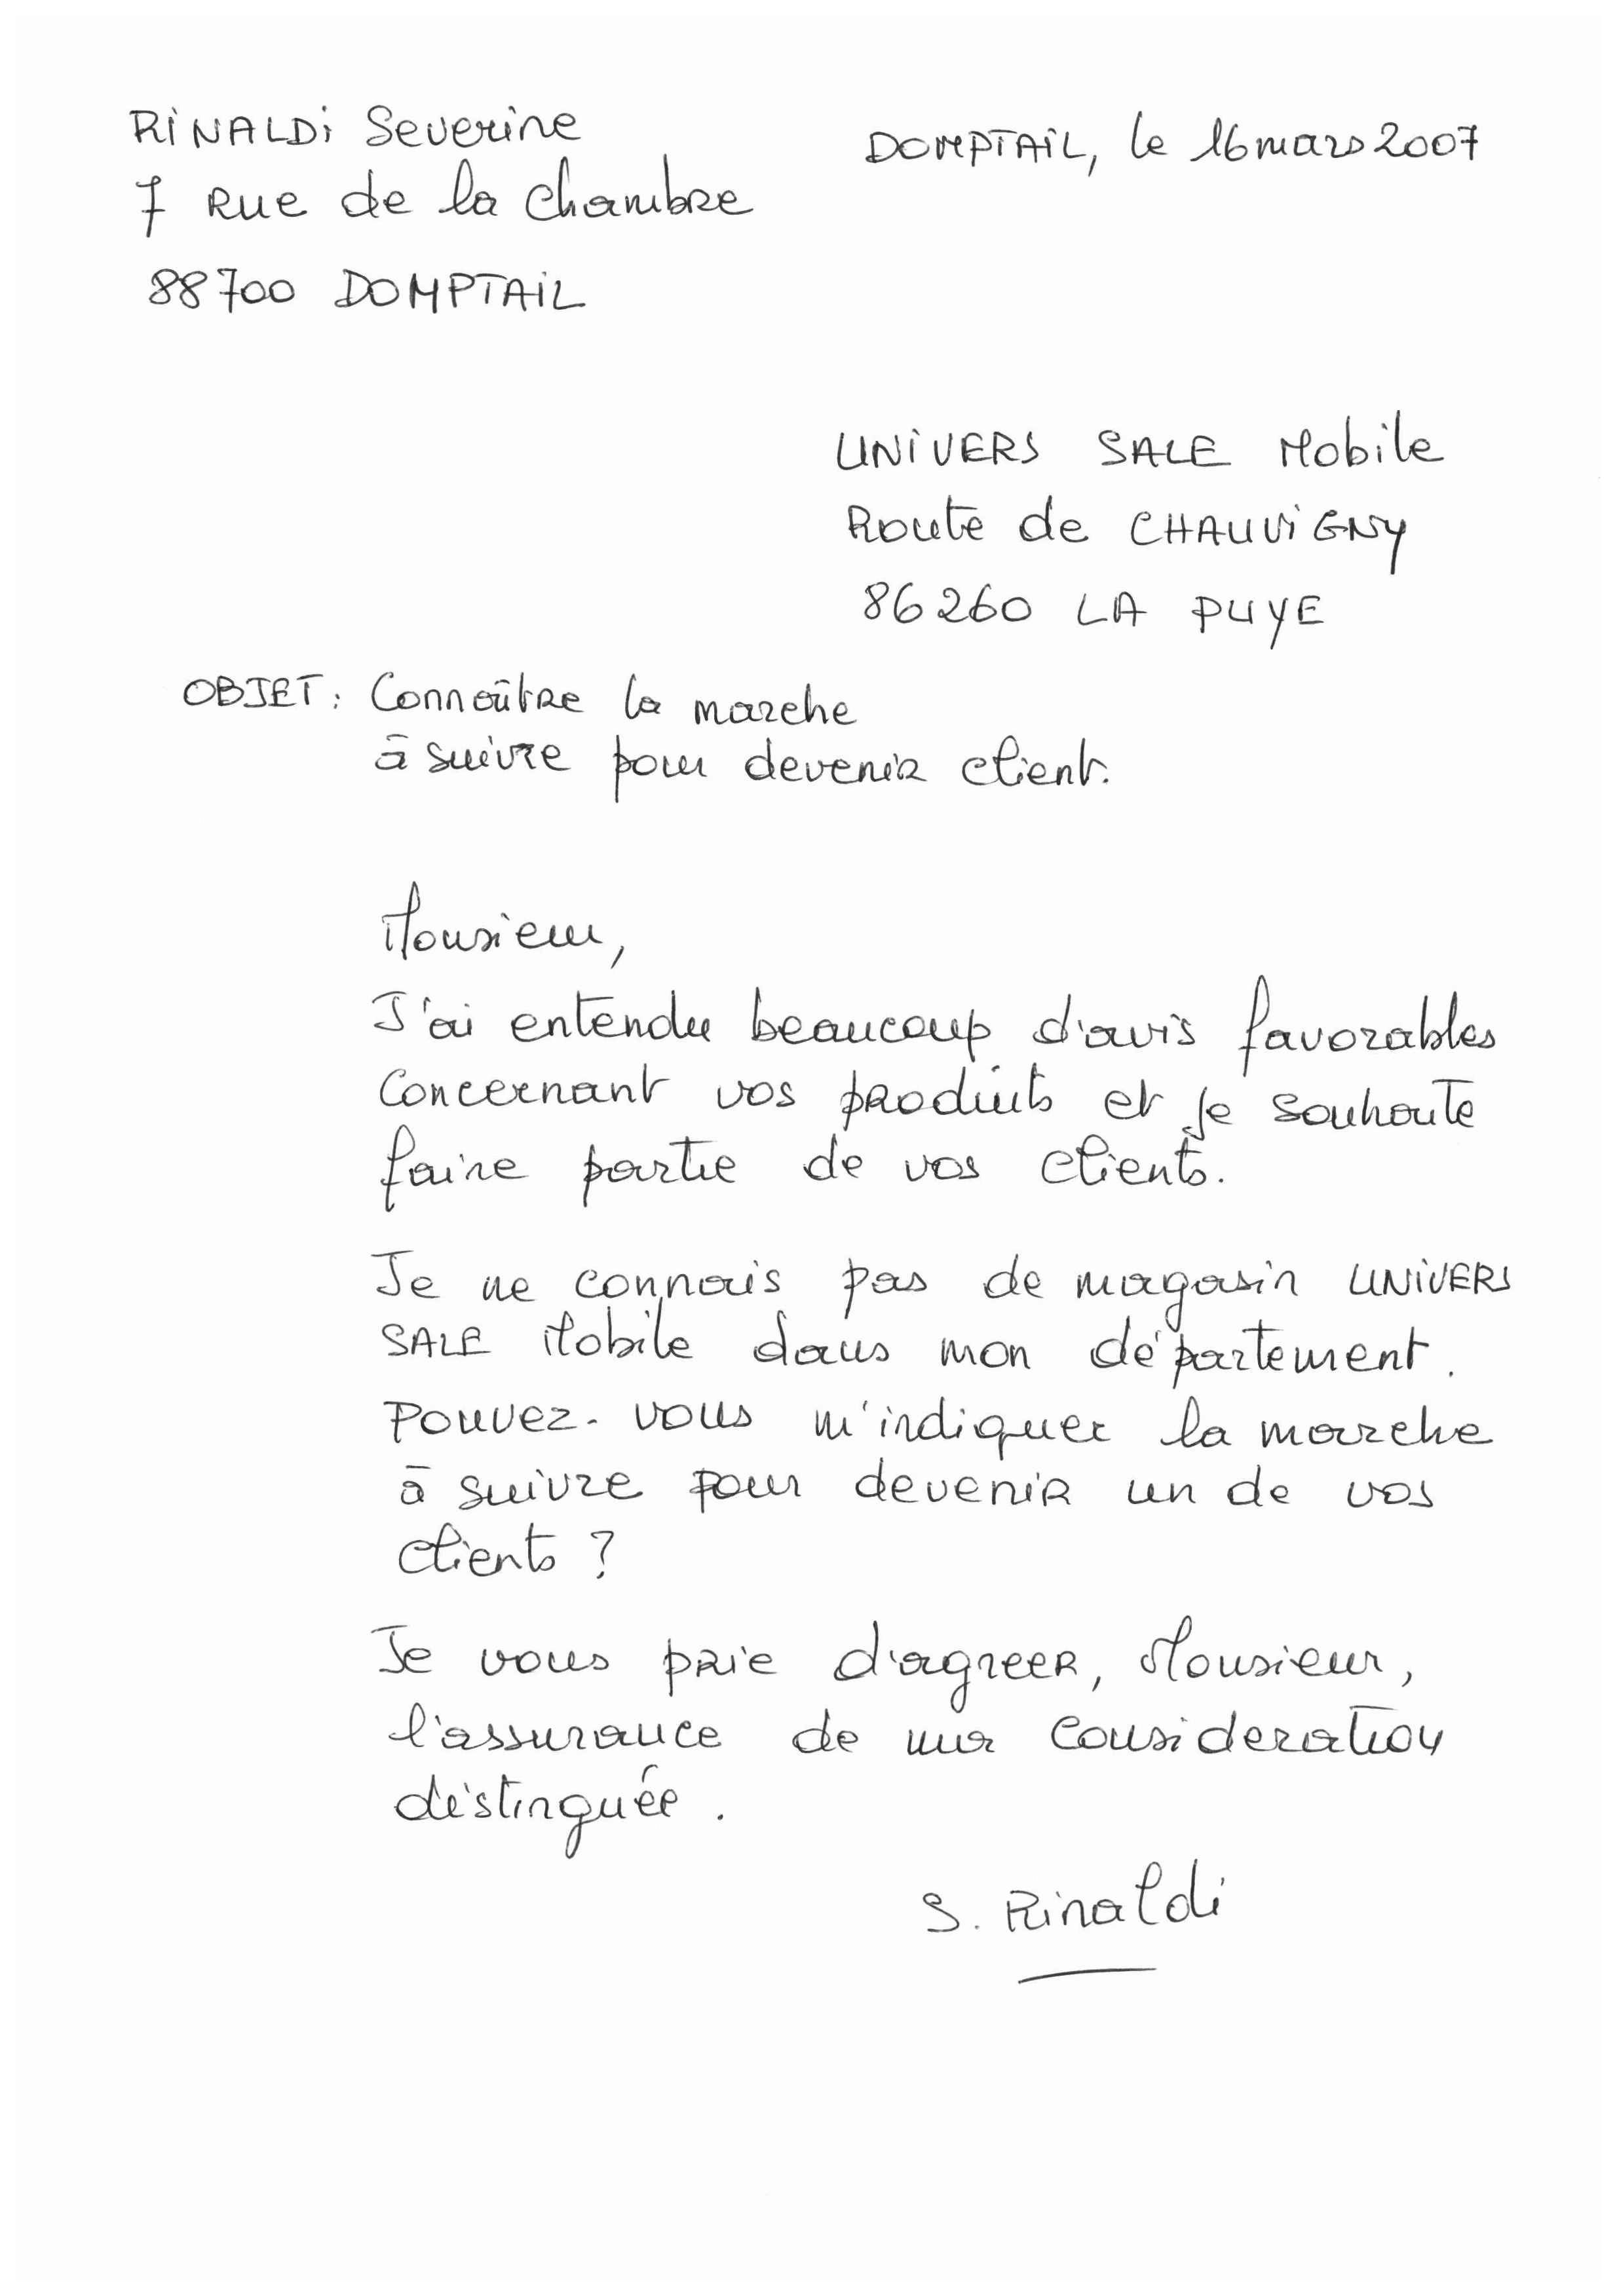 RINALDI Severine
7 Rue de la Chambre
88700 DOMPTAIL
DOMPTAIL, le 16 mars 2007
UNIVERS SALE Mobile
Route de CHAUVIGNY
86260 LA PUYE
OBJET : Connaître la marche
à suivre pour devenir client.
Monsieur,
J'ai entendu beaucoup d'avis favorables
Concernant vos produits et je souhaite
faire partie de vos clients.
Je ne connais pas de magasin UNIVERS
SALE Mobile dans mon département.
Pouvez-vous m'indiquer la marche
à suivre pour devenir un de vos
clients ?
Je vous prie d'agreer, Monsieur,
l'assurance de ma consideration
distinguée.
S. Rinaldi